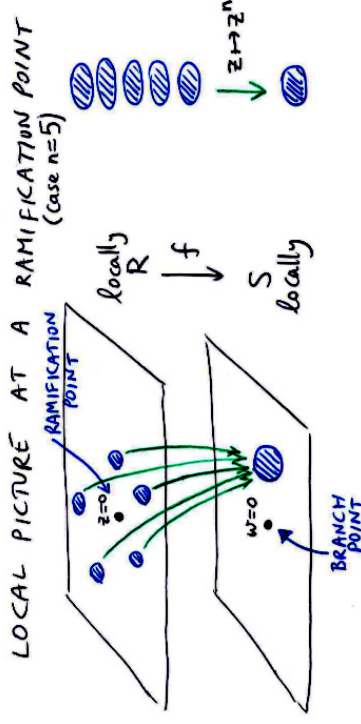 LOCAL PICTURE AT A RAMIFICATION POINT
(case n=5)
RAMIFICATION
POINT
z=0
locally
R
f
S
locally
z ↦ zⁿ
w=0
BRANCH
POINT